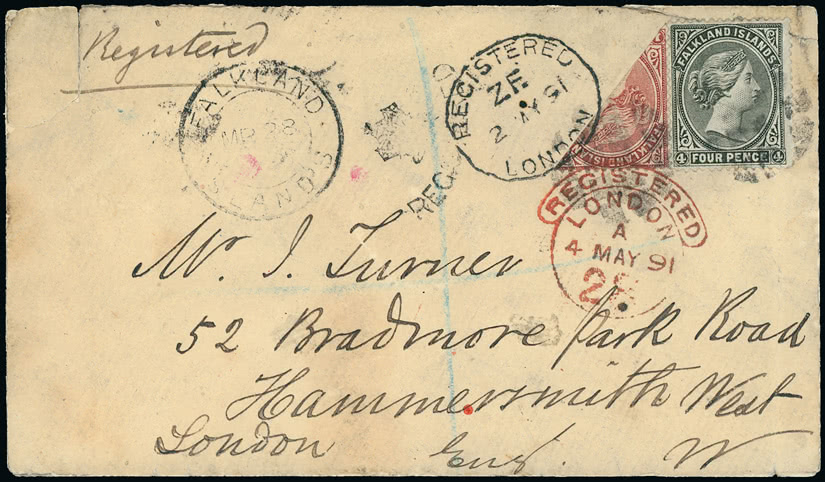 Registered
FALKLAND
ISLANDS
REGISTERED
ZE
2 MY 91
LONDON
FALKLAND ISLANDS
4 FOUR PENCE 4
REGISTERED
LONDON
A
4 MAY 91
28
Mr. J. Turner
52 Bradmore Park Road
Hammersmith West
London Eng. W